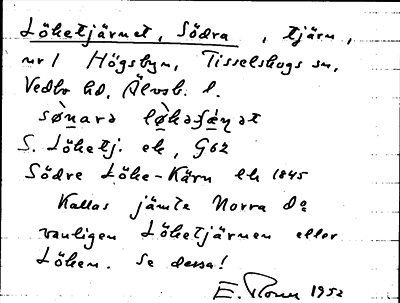 Löketjärnet, Södra, tjärn,
nr 1 Högsbyn, Tisselskogs sn,
Vedbo hd, Älvsb. l.
S. Löketj. ek, G62
Södre Löke-Kärn lk 1845
Kallas jämte Norra Do
vanligen Löketjärnen eller
Löken. Se dessa!
1952